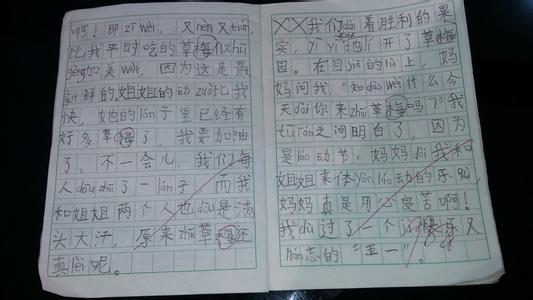 啊！那 zī wèi，又 nèn 又 tián，
比我平时吃的草梅似 hū
gèng 加美 wèi，因为这是最
新鲜的姐姐的动 zuò 比我
快，她的 lán 子里已经有
好多草梅了，我要加油
了，不一会儿，我们每
人 dōu zhāi 了一 lán 子，而我
和姐姐两个人也 dōu 是满
头大汗，原来 zhāi 草梅还
真 lèi 呢。
我们 dài 着胜利的果
实，yī yī 地 lí 开了草梅
园。在回 jiā 的 lù 上，妈
妈问我：“知 dào wèi 什么今
天 dài 你来 zhāi 草梅吗？”我
tū rán 之间明白了，因为
是 láo 动节，妈妈 dài 我和
姐姐来体 yàn láo 动的乐 qù，
妈妈真是用心良苦啊！
我 dù 过了一个 快乐又
nán 忘的“五一”。